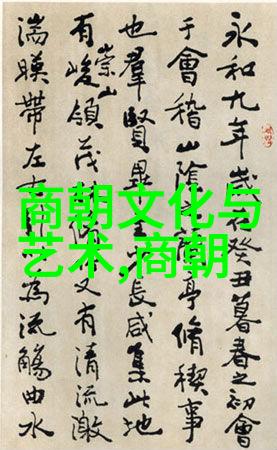 商朝文化与
艺术,商朝
永和九年歲在癸丑暮春之初會
于會稽山陰之亭脩稧事
也羣賢畢至長咸集此地
有崇山峻領茂又有清流激
湍暎帶左右為流觴曲水